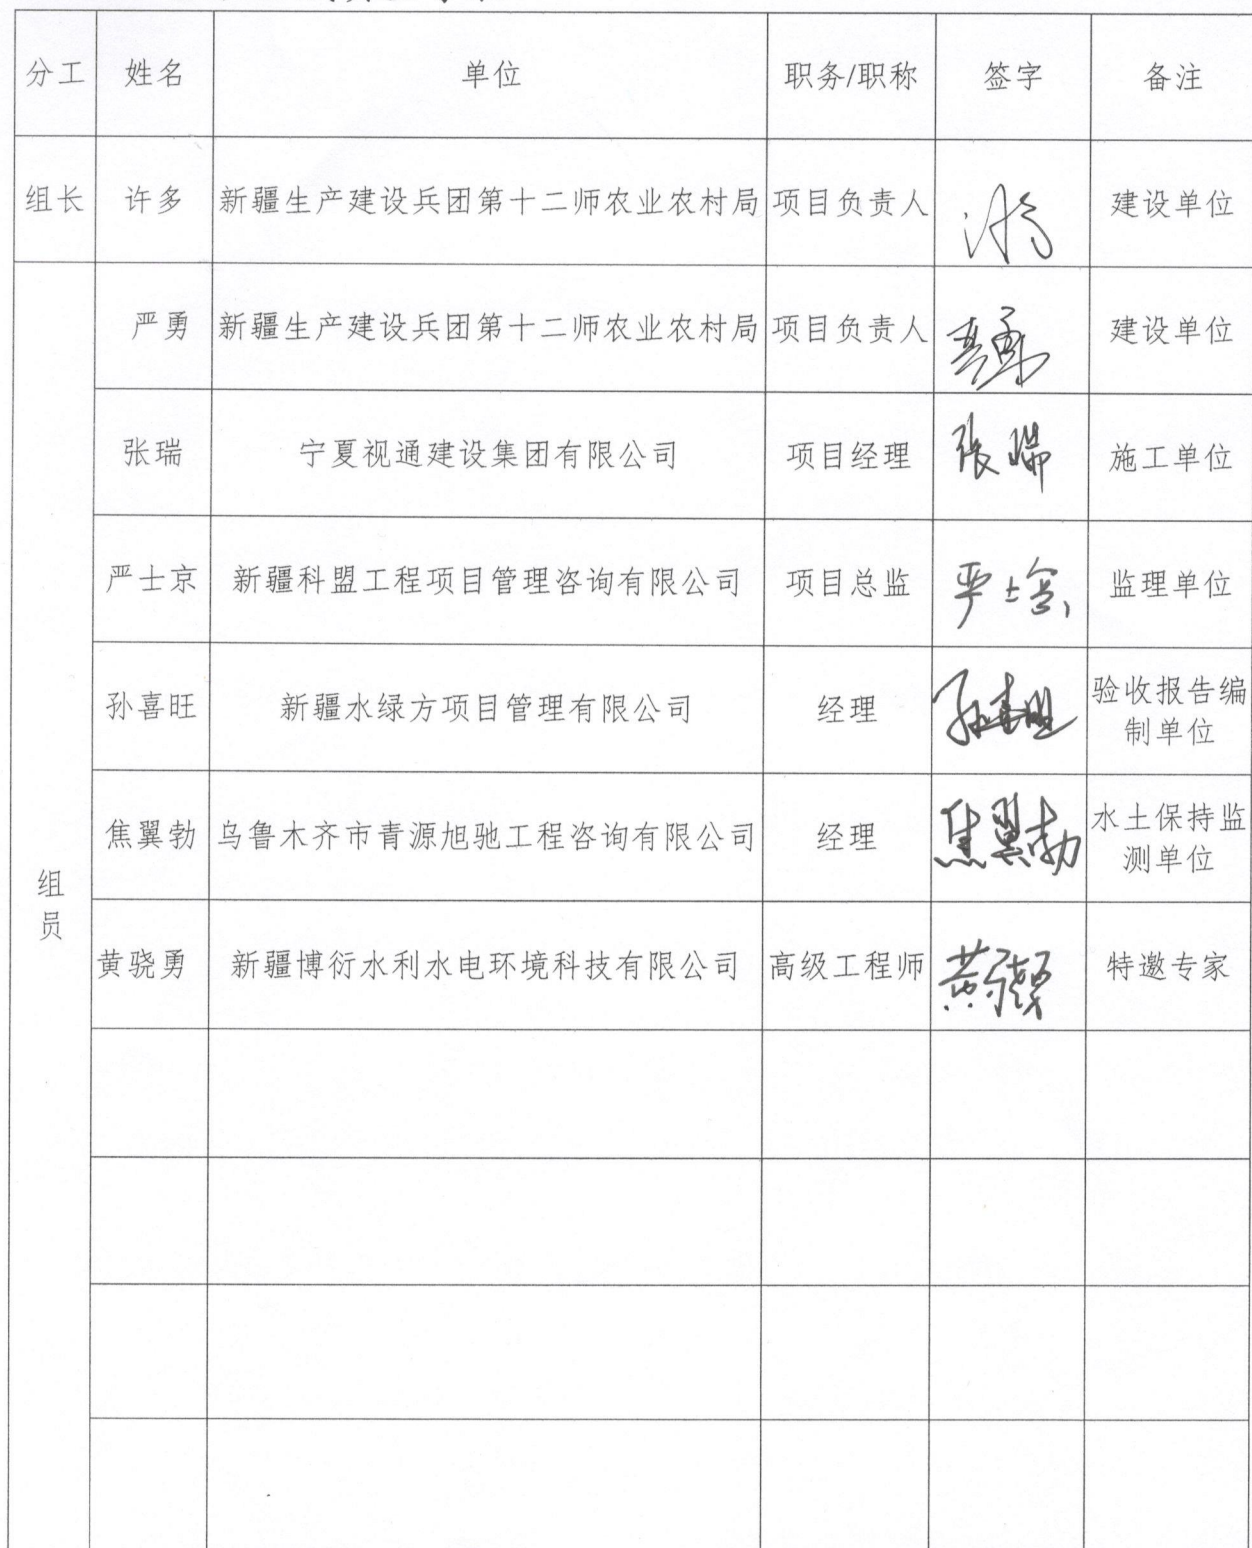 分工 姓名 单位 职务/职称 签字 备注
组长 许多 新疆生产建设兵团第十二师农业农村局 项目负责人 建设单位
严勇 新疆生产建设兵团第十二师农业农村局 项目负责人 建设单位
张瑞 宁夏视通建设集团有限公司 项目经理 张瑞 施工单位
严士京 新疆科盟工程项目管理咨询有限公司 项目总监 严士京 监理单位
孙喜旺 新疆水绿方项目管理有限公司 经理 孙喜旺 验收报告编
制单位
焦翼勃 乌鲁木齐市青源旭驰工程咨询有限公司 经理 焦翼勃 水土保持监
测单位
组
员
黄骁勇 新疆博衍水利水电环境科技有限公司 高级工程师 黄骁勇 特邀专家